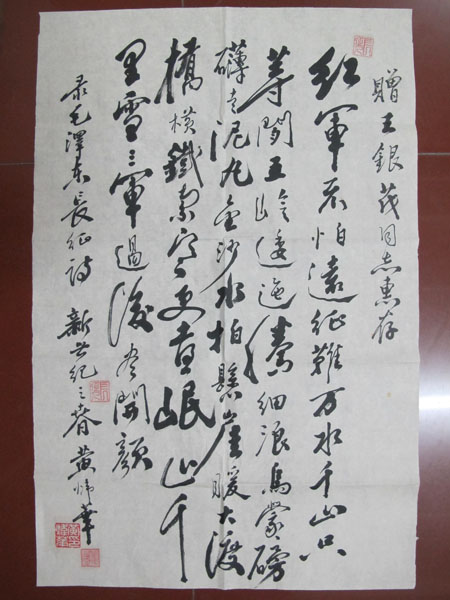 贈王銀茂同志惠存
红軍不怕遠征難万水千山只
等閑五岭逶迤腾细浪烏蒙磅
礴走泥丸金沙水拍懸崖暖大渡
橋横鐵索寒更喜岷山千
里雪三軍過後尽開顏
录毛澤东長征詩 新世纪之春 黄煒華